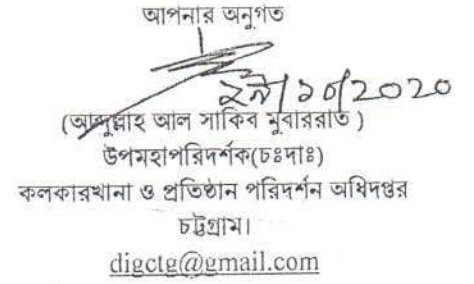 আপনার অনুগত
২৯/১০/2020
(আব্দুল্লাহ আল সাকিব মুবাররাত)
উপমহাপরিদর্শক(চঃদাঃ)
কলকারখানা ও প্রতিষ্ঠান পরিদর্শন অধিদপ্তর
চট্টগ্রাম।
digctg@gmail.com